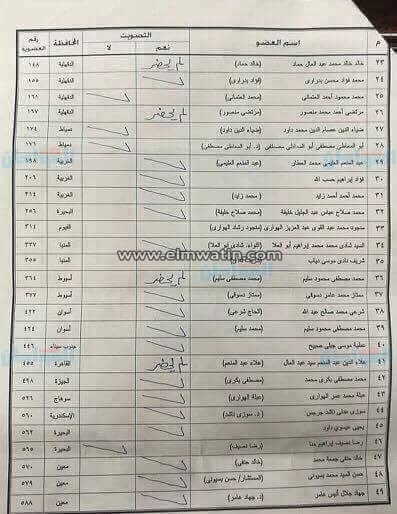 م اسم العضو التصويت المحافظة رقم العضوية
نعم لا
٢٣ خالد خالد محمد عبد العال حماد (خالد حماد) لم يحضر الدقهلية ١٤٨
٢٤ محمد فؤاد محسن بدراوى (فؤاد بدراوى) الدقهلية ١٥٥
٢٥ محمد محمود أحمد العتمانى (محمد العتمانى) الدقهلية ١٦١
٢٦ مرتضى أحمد محمد منصور (مرتضى منصور) لم يحضر الدقهلية ١٦٧
٢٧ ضياء الدين عصار الدين محمد داود (ضياء الدين داود) دمياط ١٧٤
٢٨ أبو المعاطى مصطفى أبو السعادات مصطفى (د. أبو المعاطى مصطفى) دمياط ١٧٦
٢٩ عبد المنعم العليمى محمد العطار (عبد المنعم العليمى) الغربية ١٩٨
٣٠ فؤاد إبراهيم حسب الله الغربية ٢٠٦
٣١ محمد أحمد أحمد زايد (محمد زايد) الغربية ٢١٤
٣٢ محمد صلاح عباس عبد الجليل خليفة (محمد صلاح خليفة) البحيرة ٢٥٦
٣٣ ممدوح محمد عبد القوى عبد العزيز الهوارى الفيوم ٣١٤
٣٤ السيد شادى محمد محمد إبراهيم أبو العلا (اللواء/ شادى أبو العلا) المنيا ٣٣٧
٣٥ شريف نادى موسى دياب المنيا ٣٥٥
www.elmwatin.com
٣٦ محمد مصطفى محمود سليم (محمد مصطفى سليم) لم يحضر أسيوط ٣٦٤
٣٧ ممتاز محمد عامر دسوقى (ممتاز دسوقى) أسيوط ٣٧٧
٣٨ شرعى محمد صالح عبد الله (الحاج شرعى) أسوان ٤٢٢
٣٩ محمد محمود سليم (محمد سليم) أسوان ٤٢٤
٤٠ عطية موسى جبلى صبيح جنوب سيناء ٤٤٦
٤١ علاء الدين عبد المنعم سيد عبد العال (علاء عبد المنعم) لم يحضر القاهرة ٤٥٥
٤٢ محمد مصطفى بكرى محمد (مصطفى بكرى) الجيزة ٤٩٨
٤٣ عبلة محمد عمر الهوارى (عبلة الهوارى) سوهاج ٥٢٦
٤٤ سوزى عدلى ناشد جرجس (د. سوزى ناشد) الإسكندرية ٥٦٠
٤٥ يحيى عيسوى داود البحيرة ٥٦٢
٤٦ رضا نصيف إبراهيم حنا (رضا نصيف) البحيرة ٥٦٥
٤٧ خالد حنفى جمعة محمد (خالد حنفى) معين ٥٧٠
٤٨ حسن السيد محمد بسيونى (المستشار/ حسن بسيونى) معين ٥٧٩
٤٩ جهاد جلال أنيس عامر (د. جهاد عامر) معين ٥٨٨